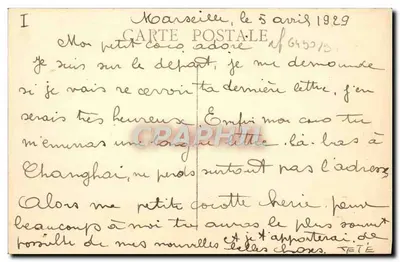 I
Marseille, le 5 avril 1929
CARTE POSTALE
Mon petit coco adoré
Je suis sur le départ, je me demande
si je vais recevoir ta dernière lettre, j'en
serais très heureux. Enfin mon coco tu
m'enverras une longue lettre là-bas à
Changhai, ne perds surtout pas l'adresse
Alors ma petite cocotte chérie pense
beaucoup à moi tu auras le plus souvent
possible de mes nouvelles et je t'apporterai de
belles choses. JETE
CPARAMA